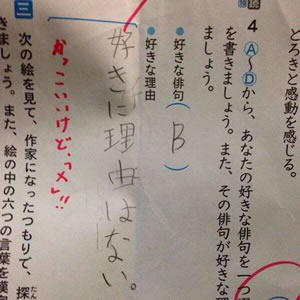 どろきと感動を感じる。
4 Ⓐ〜Ⓓから、あなたの好きな俳句を一つ選
を書きましょう。また、その俳句が好きな理
ましょう。
●好きな俳句（ B ）
●好きな理由
好きに理由はない。
かっこいいけど、ダメ!!
三 次の絵を見て、作家になったつもりで、探
きましょう。また、絵の中の六つの言葉を漢